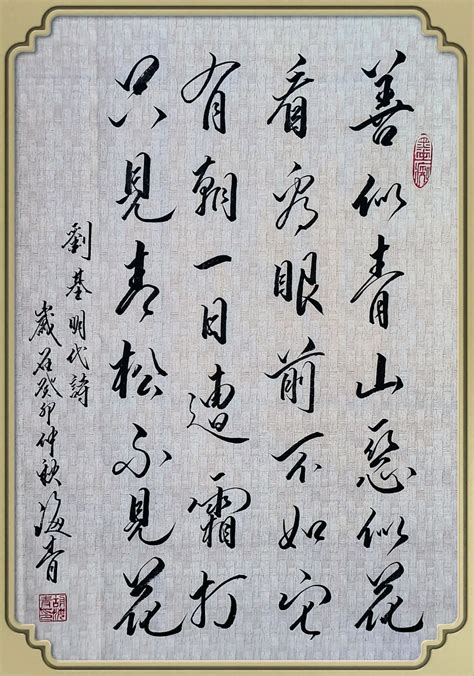 善似青山惡似花
看看眼前不如它
有朝一日遭霜打
只見青松不見花
劉基明代詩
歲在癸卯仲秋海青